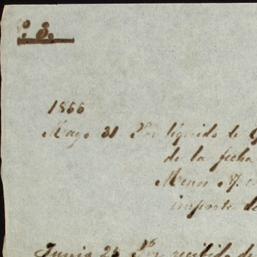 1866
Mayo 31 Por líquido de
de la fecha
Menos
importe de
Junio 25 Por recibido de